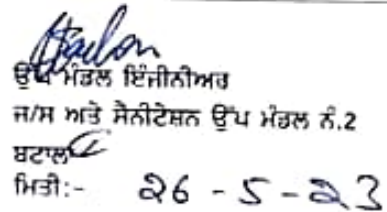 ਉੱਪ ਮੰਡਲ ਇੰਜੀਨੀਅਰ
ਜ/ਸ ਅਤੇ ਸੈਨੀਟੇਸ਼ਨ ਉੱਪ ਮੰਡਲ ਨੰ.2
ਬਟਾਲਾ
ਮਿਤੀ:- 26-5-23